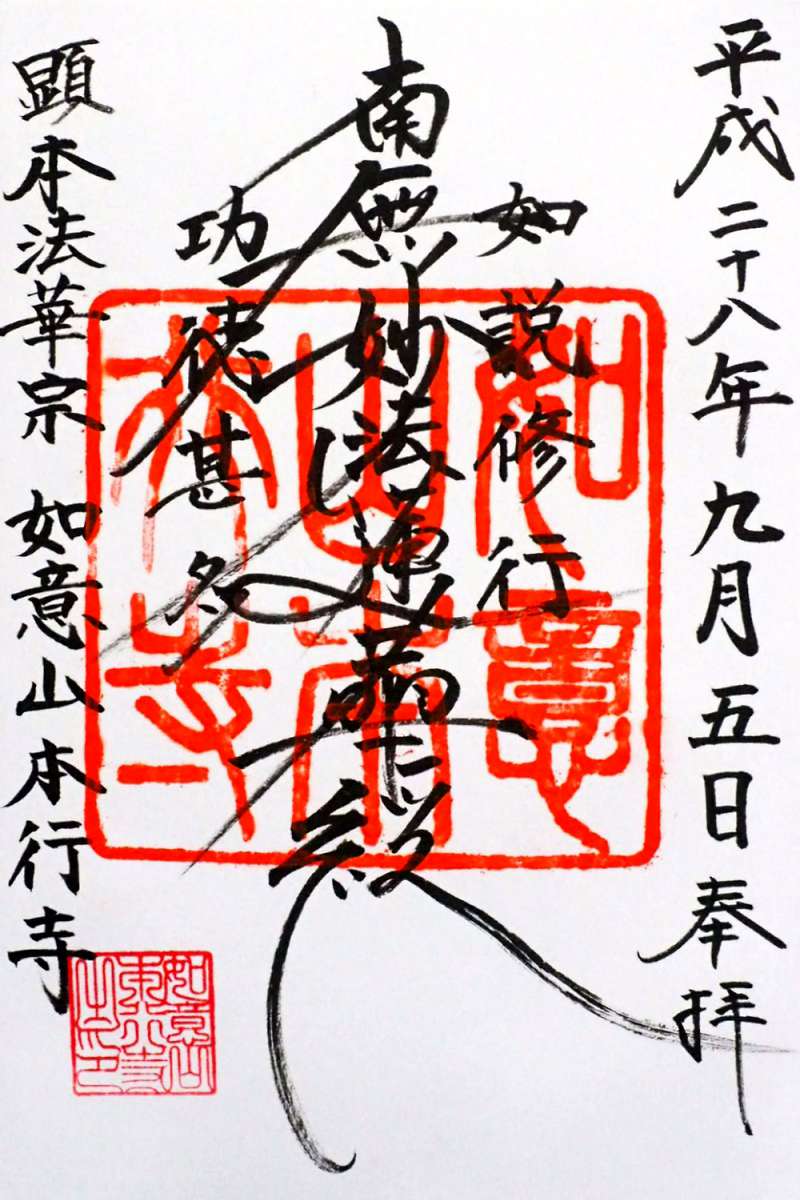 平成二十八年九月五日 奉拝
如説修行
南無妙法蓮華経
功徳甚多
顕本法華宗 如意山本行寺
如意
山本
行寺